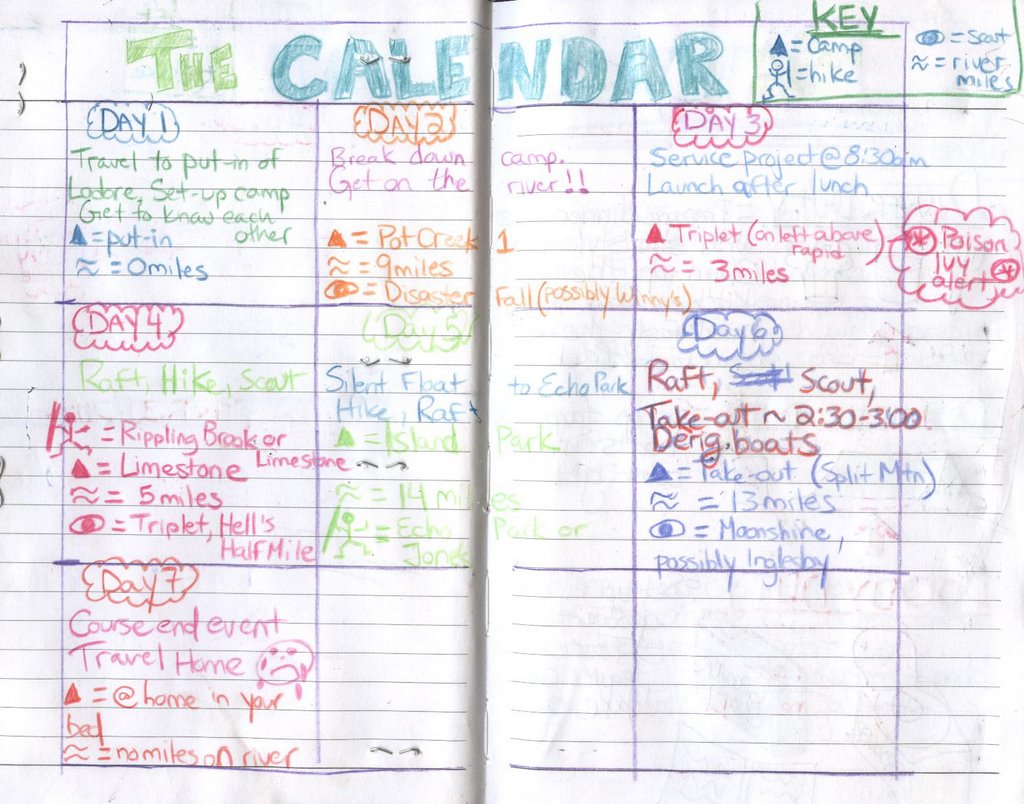 THE CALENDAR
KEY
▲ = Camp
= hike
= Scout
≈ = river miles
DAY 1
Travel to put-in of
Lodore, Set-up camp
Get to know each
other
▲ = put-in
≈ = 0 miles
DAY 2
Break down camp.
Get on the river!!
▲ = Pot Creek 1
≈ = 9 miles
= Disaster Fall (possibly Winny's)
DAY 3
Service project @ 8:30am
Launch after lunch
▲ Triplet (on left above
rapid)
≈ = 3 miles
Poison
Ivy
alert
DAY 4
Raft, Hike, Scout
= Rippling Brook or
Limestone
▲ = Limestone
≈ = 5 miles
= Triplet, Hell's
Half Mile
Day 5
Silent Float to Echo Park
Hike, Raft
▲ = Island Park
≈ = 14 miles
= Echo Park or
Jones
Day 6
Raft, Scout,
Take-out ~ 2:30-3:00
Derig boats
▲ = Take-out (Split Mtn)
≈ = 13 miles
= Moonshine,
possibly Inglesby
Day 7
Course end event
Travel Home
▲ = @ home in your
bed
≈ = no miles on river